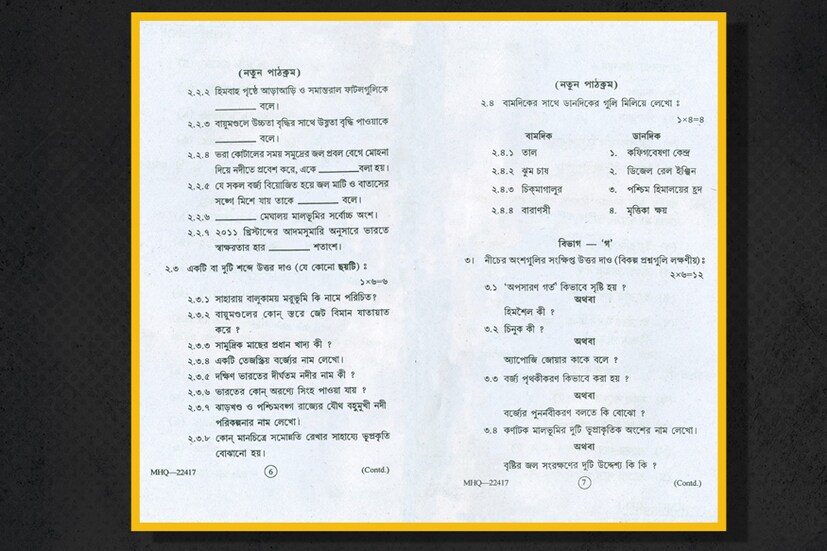 (নতুন পাঠক্রম)
২.২.২ হিমবাহ পৃষ্ঠে আড়াআড়ি ও সমান্তরাল ফাটলগুলিকে
________ বলে।
২.২.৩ বায়ুমণ্ডলে উচ্চতা বৃদ্ধির সাথে উষ্ণতা বৃদ্ধি পাওয়াকে
________ বলে।
২.২.৪ ভরা কোটালের সময় সমুদ্রের জল প্রবল বেগে মোহনা
দিয়ে নদীতে প্রবেশ করে, একে ________ বলা হয়।
২.২.৫ যে সকল বর্জ্য বিয়োজিত হয়ে জল মাটি ও বাতাসের
সঙ্গে মিশে যায় তাকে ________ বলে।
২.২.৬ ________ মেঘালয় মালভূমির সর্বোচ্চ অংশ।
২.২.৭ ২০১১ খ্রিস্টাব্দের আদমসুমারি অনুসারে ভারতে
স্বাক্ষরতার হার ________ শতাংশ।
২.৩ একটি বা দুটি শব্দে উত্তর দাও (যে কোনো ছয়টি) :
১×৬=৬
২.৩.১ সাহারায় বালুকাময় মরুভূমি কি নামে পরিচিত?
২.৩.২ বায়ুমণ্ডলের কোন্ স্তরে জেট বিমান যাতায়াত
করে ?
২.৩.৩ সামুদ্রিক মাছের প্রধান খাদ্য কী ?
২.৩.৪ একটি তেজস্ক্রিয় বর্জ্যের নাম লেখো।
২.৩.৫ দক্ষিণ ভারতের দীর্ঘতম নদীর নাম কী ?
২.৩.৬ ভারতের কোন্ অরণ্যে সিংহ পাওয়া যায় ?
২.৩.৭ ঝাড়খণ্ড ও পশ্চিমবঙ্গ রাজ্যের যৌথ বহুমুখী নদী
পরিকল্পনার নাম লেখো।
২.৩.৮ কোন্ মানচিত্রে সমোন্নতি রেখার সাহায্যে ভূপ্রকৃতি
বোঝানো হয়।
MHQ—22417 6 (Contd.)
(নতুন পাঠক্রম)
২.৪ বামদিকের সাথে ডানদিকের গুলি মিলিয়ে লেখো :
১×৪=৪
বামদিক ডানদিক
২.৪.১ তাল ১. কফিগবেষণা কেন্দ্র
২.৪.২ ঝুম চাষ ২. ডিজেল রেল ইঞ্জিন
২.৪.৩ চিক্‌মাগালুর ৩. পশ্চিম হিমালয়ের হ্রদ
২.৪.৪ বারাণসী ৪. মৃত্তিকা ক্ষয়
বিভাগ — 'গ'
৩। নীচের অংশগুলির সংক্ষিপ্ত উত্তর দাও (বিকল্প প্রশ্নগুলি লক্ষণীয়):
২×৬=১২
৩.১ 'অপসারণ গর্ত' কিভাবে সৃষ্টি হয় ?
অথবা
হিমশৈল কী ?
৩.২ চিনুক কী ?
অথবা
অ্যাপোজি জোয়ার কাকে বলে ?
৩.৩ বর্জ্য পৃথকীকরণ কিভাবে করা হয় ?
অথবা
বর্জ্যের পুনর্নবীকরণ বলতে কি বোঝো ?
৩.৪ কর্ণাটক মালভূমির দুটি ভূপ্রাকৃতিক অংশের নাম লেখো।
অথবা
বৃষ্টির জল সংরক্ষণের দুটি উদ্দেশ্য কি কি ?
MHQ—22417 7 (Contd.)